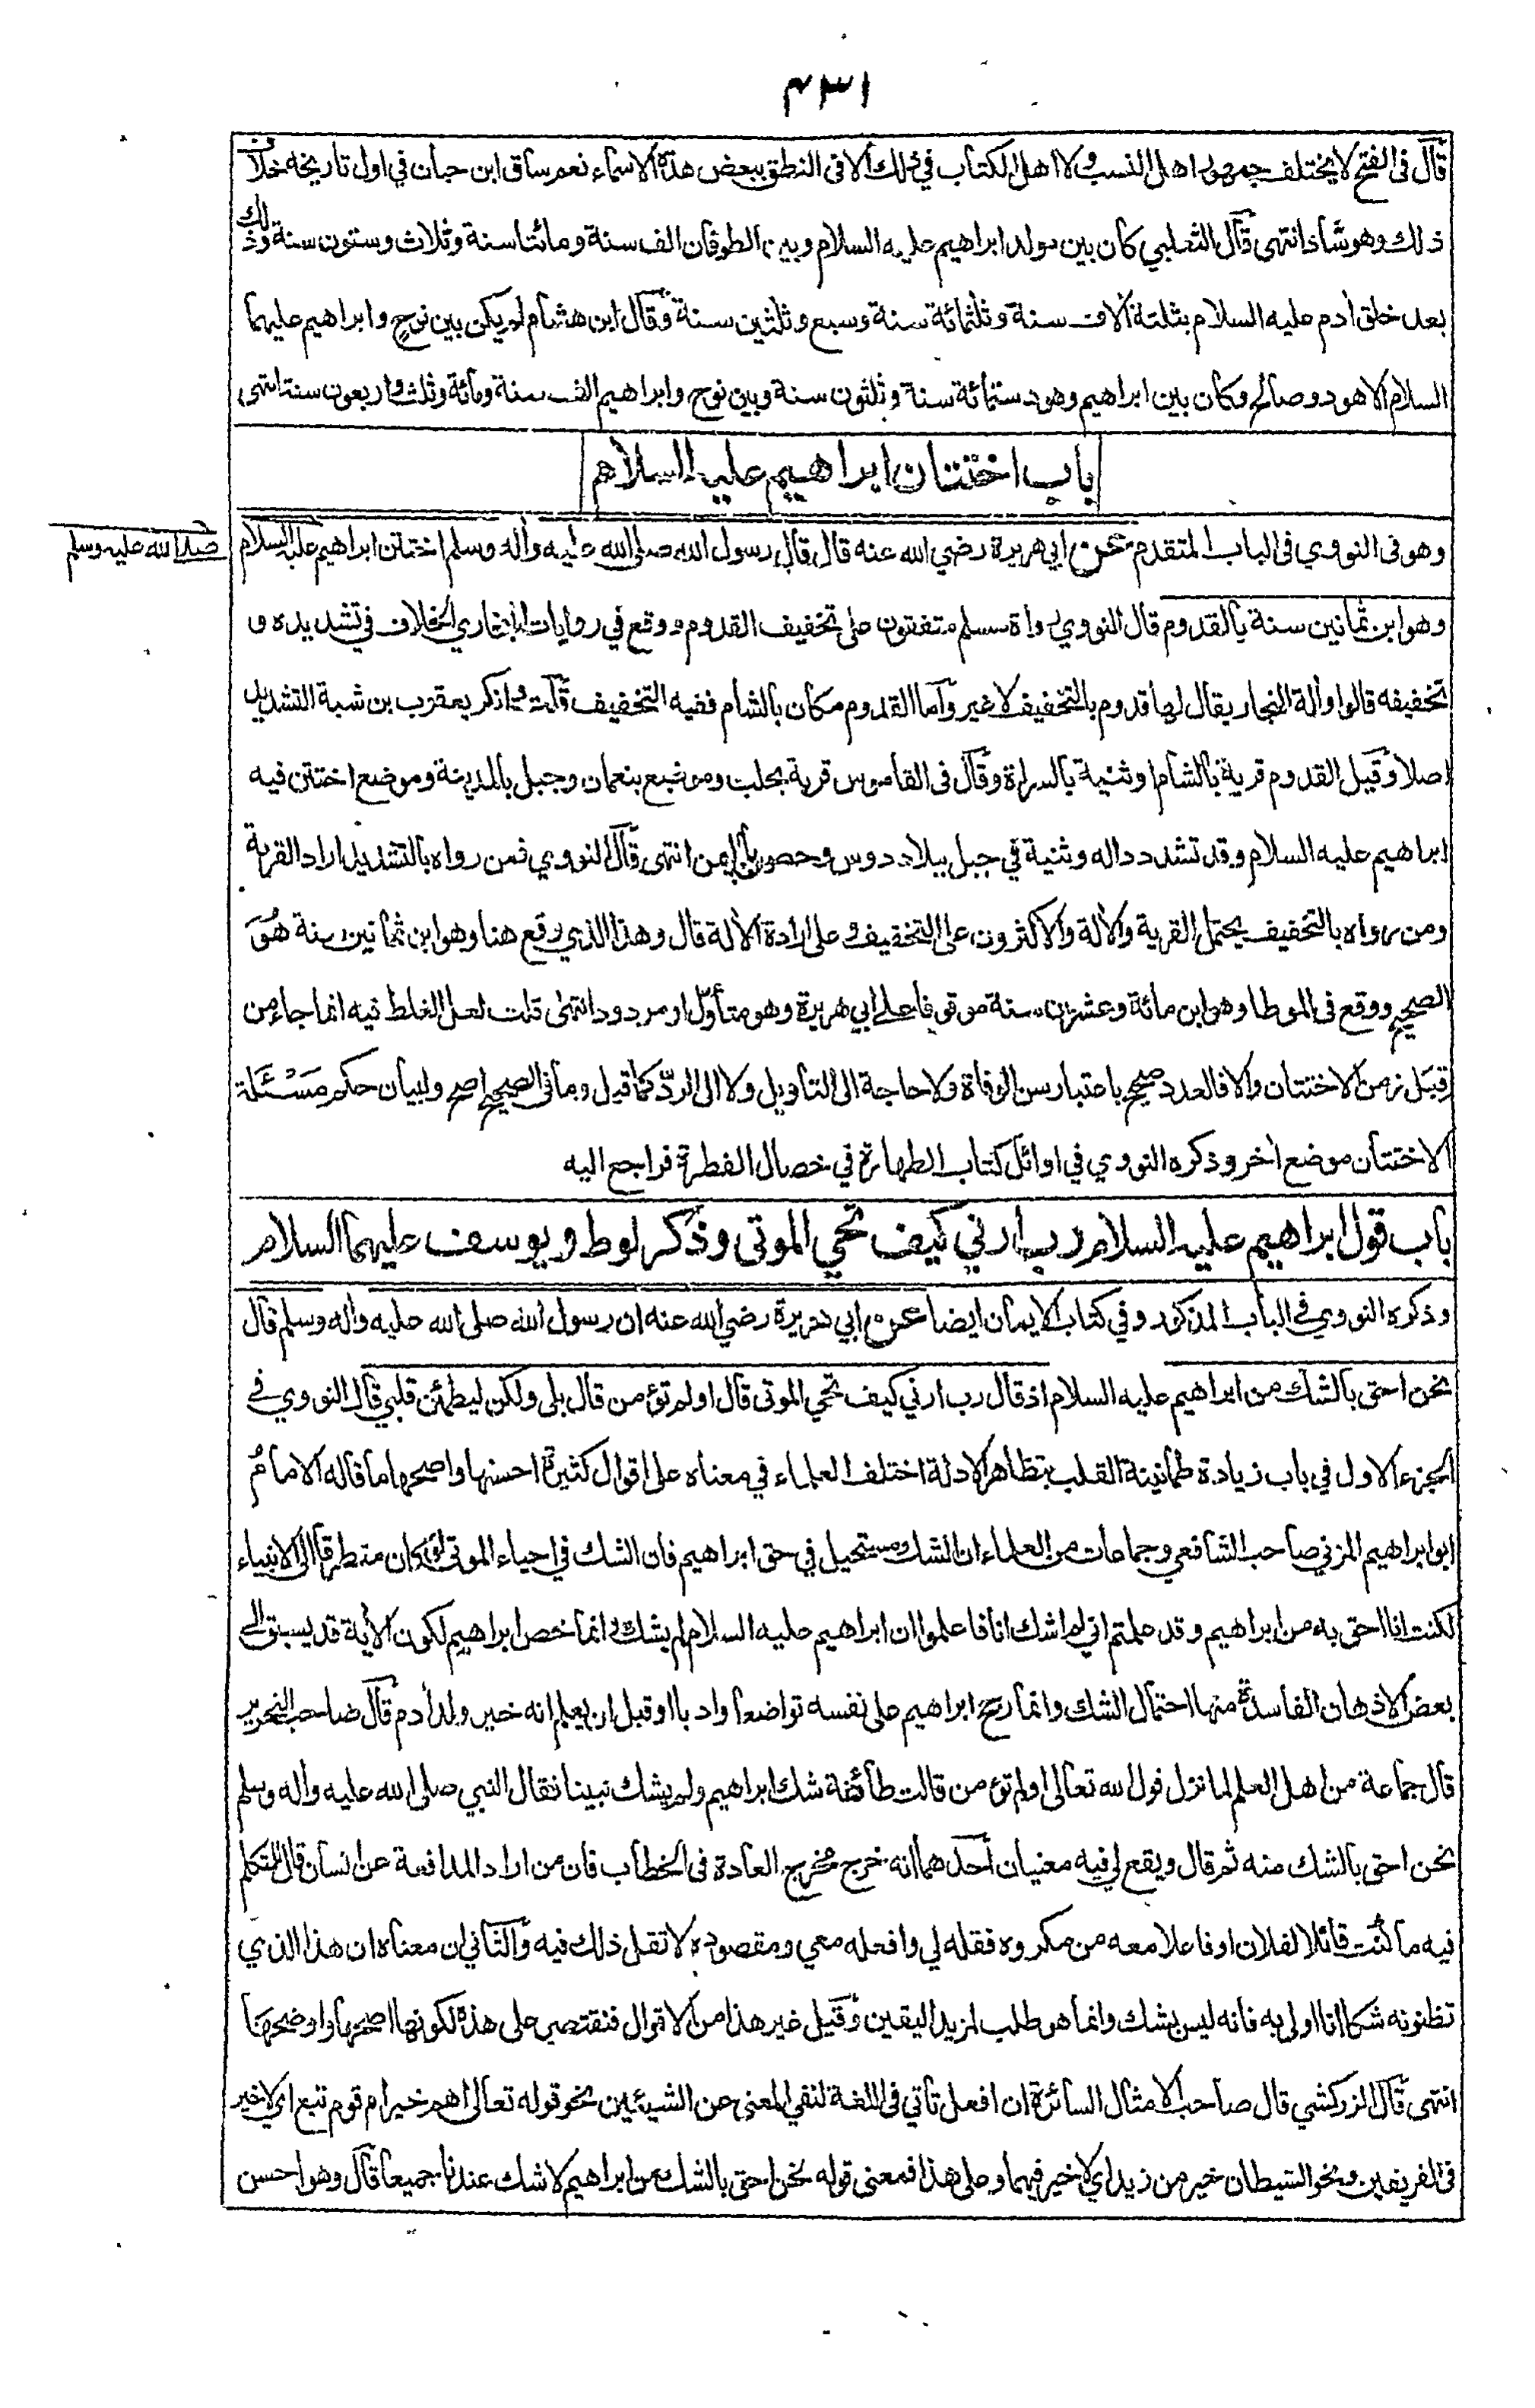 ٤٣١
قال فى الفتح لا يختلف جمهور اهل النسب ولا اهل الكتاب في ذلك الا فى النطق ببعض هذه الاسماء نعم ساق ابن حبان في اول تاريخه خلاف
ذلك وهو شاذ انتهى قال الثعلبي كان بين مولد ابراهيم عليه السلام وبين الطوفان الف سنة ومائتا سنة وثلاث وستون سنة وذلك
بعد خلق أدم عليه السلام بثلثة ألاف سنة وثلثمائة سنة وسبع وثلثين سنة وقال ابن هشام لم يكن بين نوح وابراهيم عليهما
السلام الا هود وصالح وكان بين ابراهيم وهود ستمائة سنة وثلثون سنة وبين نوح وابراهيم الف سنة ومائة وثلث واربعون سنة انتهى
باب اختتان ابراهيم عليه السلام
وهو فى النووي فى الباب المتقدم عن ابي هريرة رضي الله عنه قال قال رسول الله صلى الله عليه وأله وسلم اختتن ابراهيم عليه السلام
صلى الله عليه وسلم
وهو ابن ثمانين سنة بالقدوم قال النووي رواة مسلم متفقون على تخفيف القدوم ووقع في روايات البخاري الخلاف في تشديده و
تخفيفه قالوا وألة النجار يقال لها قدوم بالتخفيف لا غير وأما القدوم مكان بالشام ففيه التخفيف قلت وما ذكر يعقوب بن شبة التشديد
اصلا وقيل القدوم قرية بالشام او ثنية بالسراة وقال فى القاموس قرية بحلب وموضع بنعمان وجبل بالمدينة وموضع اختتن فيه
ابراهيم عليه السلام وقد تشدد داله وثنية في جبل ببلاد دوس وحصن باليمن انتهى قال النووي فمن رواه بالتشديد اراد القرية
ومن رواه بالتخفيف يحتمل القرية والألة والاكثرون على التخفيف وعلى ارادة الألة قال وهذا الذي وقع هنا وهو ابن ثمانين سنة هُوَ
الصحيح ووقع فى الموطا وهو ابن مائة وعشرين سنة موقوفا على ابي هريرة وهو متأوّل او مردود انتهى قلت لعل الغلط فيه انما جاء من
قِبَل زمن الاختتان والا فالعدد صحيح باعتبار سن الوفاة ولا حاجة الى التاويل ولا الى الردّ كما قيل وما فى الصحيح اصح ولبيان حكم مَسْئَلة
الاختتان موضع أخر وذكره النووي في اوائل كتاب الطهارة في خصال الفطرة فراجع اليه
باب قول ابراهيم عليه السلام رب أرني كيف تحي الموتى وذكر لوط ويوسف عليهما السلام
وذكره النووي في الباب المذكور وفي كتاب الايمان ايضا عن ابي هريرة رضي الله عنه ان رسول الله صلى الله عليه وأله وسلم قال
نحن احق بالشك من ابراهيم عليه السلام اذ قال رب ارني كيف تحي الموتى قال اولم تؤمن قال بلى ولكن ليطمئن قلبي قال النووي في
الجزء الاول في باب زيادة طمانينة القلب بتظاهر الادلة اختلف العلماء في معناه على اقوال كثيرة احسنها واصحها ما قاله الامامُ
ابو ابراهيم المزني صاحب الشافعي وجماعات من العلماء ان الشك مستحيل في حق ابراهيم فان الشك في احياء الموتى لو كان متطرقا الى الانبياء
لكنت انا احق به من ابراهيم وقد علمتم اني لم اشك انا فاعلموا ان ابراهيم عليه السلام لم يشك وانما خص ابراهيم لكون الأية قد يسبق الى
بعض الاذهان الفاسدة منها احتمال الشك وانما رجح ابراهيم على نفسه تواضعا وادبا او قبل ان يعلم انه خير ولد أدم قال صاحب التحرير
قال جماعة من اهل العلم لما نزل قول الله تعالى اولم تؤمن قالت طائفة شك ابراهيم ولم يشك نبينا فقال النبي صلى الله عليه وأله وسلم
نحن احق بالشك منه ثم قال ويقع لي فيه معنيان أحدهما انه خرج مخرج العادة فى الخطاب فان من اراد المدافعة عن انسان قال للمتكلم
فيه ما كُنْت قائلا لفلان او فاعلا معه من مكروه فقله لي وافعله معي ومقصوده لا تقل ذلك فيه والثاني ان معناه ان هذا الذي
تظنونه شكا انا اولى به فانه ليس بشك وانما هو طلب لمزيد اليقين وقيل غير هذا من الاقوال فنقتصر على هذه لكونها اصحها واوضحها
انتهى قال الزركشي قال صاحب الامثال السائرة ان افعل تأتي فى اللغة لنفي المعنى عن الشيئين نحو قوله تعالى اهم خير ام قوم تبع اي لا خير
فى الفريقين ونحو الشيطان خير من زيد اي لا خير فيهما وعلى هذا فمعنى قوله نحن احق بالشك من ابراهيم لا شك عندنا جميعا قال وهو احسن